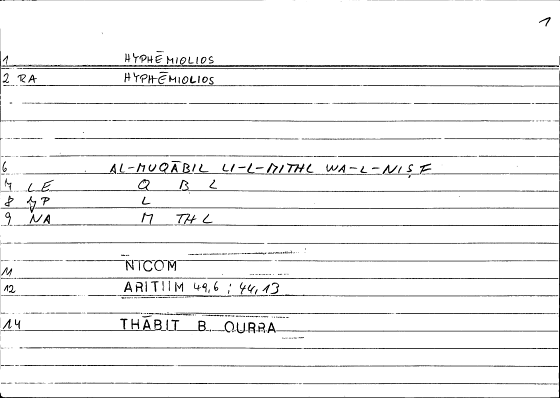 1
1 HYPHĒMIOLIOS
2 RA HYPHĒMIOLIOS
6 AL-MUQĀBIL LI-L-MITHL WA-L-NIṢF
7 LE Q B L
8 L
9 NA M THL
11 NICOM
12 ARITIIM 49,6 ; 44,13
14 THĀBIT B. QURRA